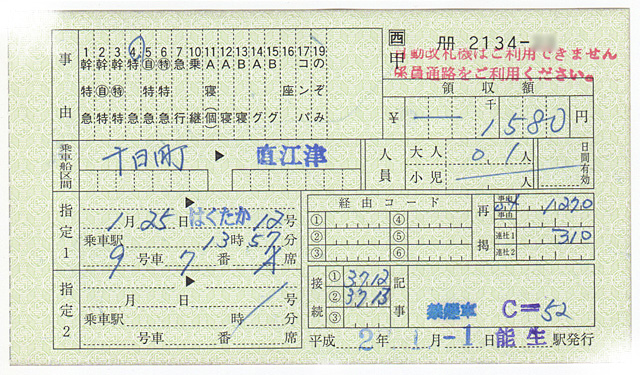 西 册 2134-
甲
自動改札機はご利用できません
係員通路をご利用ください。
事由
1 2 3 4 5 6 7 8 9 10 11 12 13 14 15 16 17 19
幹 幹 幹 特 特 特 急 乗 A A B A B コ の
特 自 特 自 特 寝 座 ン ぞ
急 特 急 急 急 急 行 継 個 寝 寝 グ グ バ み
領収額
千
¥ ― 1580 円
乗車船区間
十日町 ▶ 直江津
人員
大人 0 1 人
小児 人
日間有効
指定1
▶
1月25日 はくたか 12号
乗車駅 13時57分
9号車 7番 A席
指定2
▶
月 日 号
乗車駅 時 分
号車 番 席
経由コード
① ④
② ⑤
③ ⑥
再掲
事由 54 1270
事由
連社1 310
連社2
接続
① 3712
② 3713
③
記事
C=52
平成 2年 1月-1日 能生駅発行